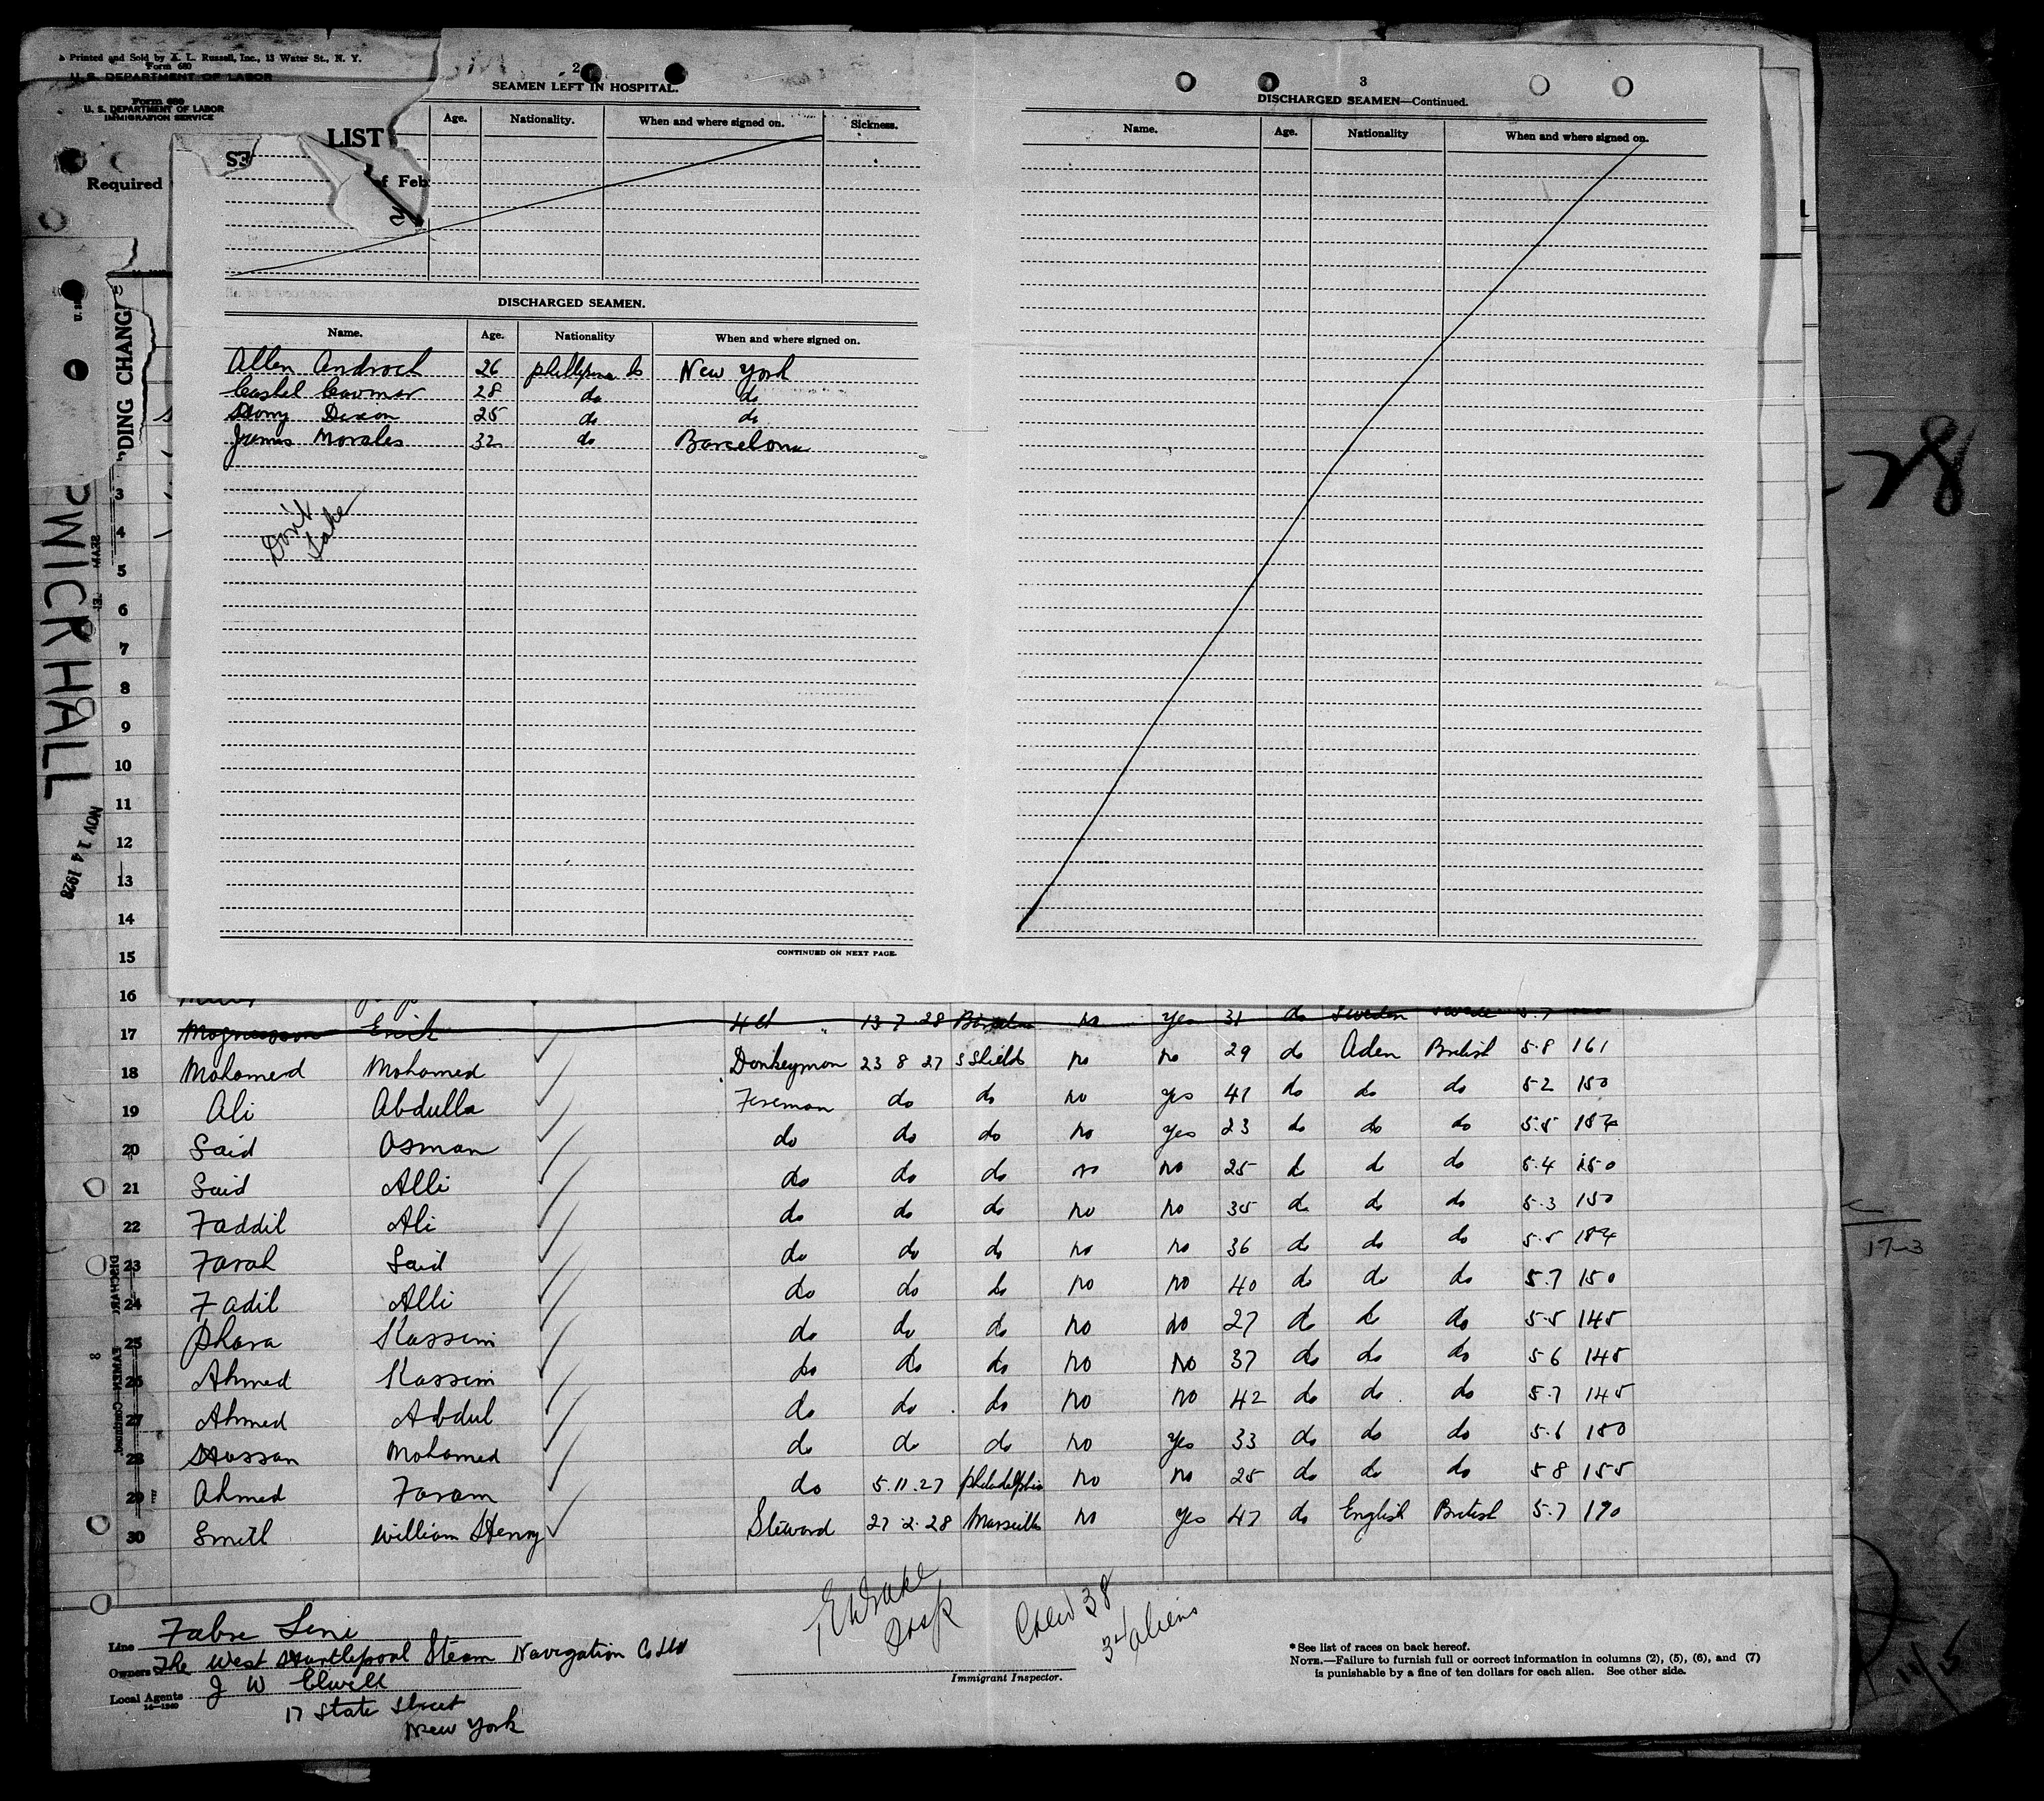 Printed and Sold by A. L. Russell, Inc., 13 Water St., N. Y.
Form 680
U. S. DEPARTMENT OF LABOR
Form 680
U. S. DEPARTMENT OF LABOR
IMMIGRATION SERVICE
LIST
Required
of Feb
2
SEAMEN LEFT IN HOSPITAL.
Age. Nationality. When and where signed on. Sickness.
DISCHARGED SEAMEN.
Name. Age. Nationality When and where signed on.
Allen 26 New York
28 do do
Dixon 25 do do
Morales 32 do Barcelona
Don't
take
CONTINUED ON NEXT PAGE.
3
DISCHARGED SEAMEN—Continued.
Name. Age. Nationality When and where signed on.
DING CHANG
WICRHALL
NOV 14 1928
28
3
4
5
6
7
8
9
10
11
12
13
14
15
16
17 Magnusson Erick 13 7 28 No Yes 31 do Sweden 5.7
18 Mohamed Mohamed Donkeyman 23 8 27 S Shields No No 29 do Aden British 5.8 161
19 Ali Abdulla Fireman do do No Yes 41 do do do 5.2 150
20 Said Osman do do do No Yes 23 do do do 5.5 154
21 Said Alli do do do No No 25 do do do 5.4 150
22 Faddil Ali do do do No No 35 do do do 5.3 150
23 Farah Said do do do No No 36 do do do 5.5 154
24 Fadil Alli do do do No No 40 do do do 5.7 150
25 Dhara Kassim do do do No No 27 do do do 5.5 145
26 Ahmed Kassim do do do No No 37 do do do 5 6 145
27 Ahmed Abdul do do do No No 42 do do do 5.7 145
28 Hassan Mohamed do do do No Yes 33 do do do 5.6 150
29 Ahmed Faram do 5.11.27 Philadelphia No No 25 do do do 5 8 155
30 Smith William Henry Steward 27.2.28 Marseills No Yes 47 do English British 5.7 170
Line Fabre Line
Owners The West Hartlepool Steam Navigation Co Ltd
Local Agents J W Elwell
14—1240
17 State Street
New York
Crew 38
34 aliens
Immigrant Inspector.
*See list of races on back hereof.
NOTE.—Failure to furnish full or correct information in columns (2), (5), (6), and (7)
is punishable by a fine of ten dollars for each alien. See other side.
17-3